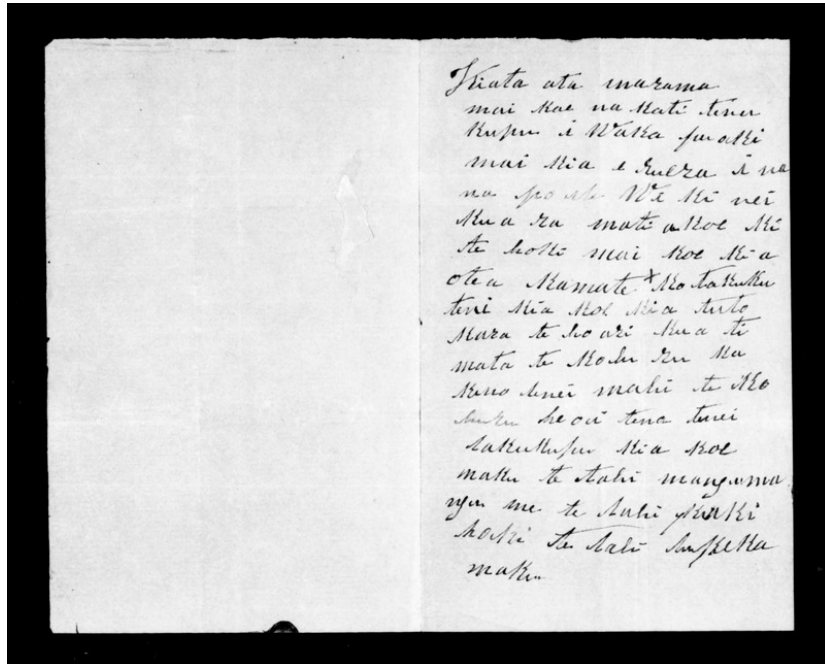 Kiata ata marama
mai koe na kati tena
kupu i Waka
mai kia e i na
na Wi ki nei
kua ra mate a koe ki
te hoki mai koe kia
otea kamate x ko takuku
teni kia koe kia tuto
kara te ho ari kua ti
mata te kohu ru ka
kino tenei mahi te ko
huru heoi tena tenei
takukupu kia koe
maku te tahi manguma
ngu me te tahi
hoki te tahi
maku